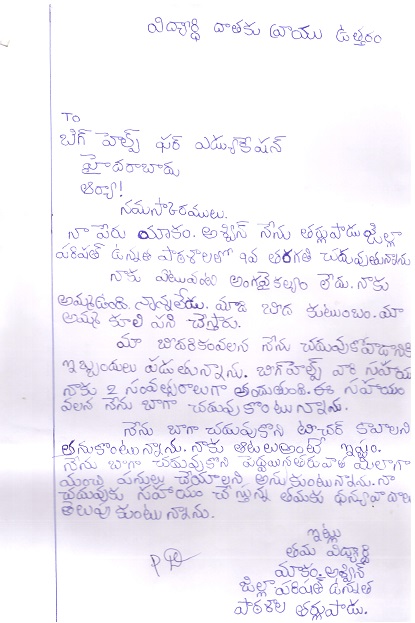 విద్యార్థి దాతకు వ్రాయు ఉత్తరం
To
బిగ్ హెల్ప్ ఫర్ ఎడ్యుకేషన్
హైదరాబాదు
ఆర్యా!
నమస్కారములు.
నా పేరు మాకం. అశ్విన్ నేను తర్లుపాడు జిల్లా
పరిషత్ ఉన్నత పాఠశాలలో 9వ తరగతి చదువుతున్నాను
నాకు ఎటువంటి అంగవైకల్యం లేదు. నాకు
అమ్మఉంది. నాన్నలేడు. మాది బీద కుటుంబం. మా
అమ్మ కూలి పని చేస్తారు.
మా బీదరికంవలన నేను చదువుకోవడానికి
ఇబ్బందులు పడుతున్నాను. బిగ్ హెల్ప్ వారి సహాయం
నాకు 2 సంవత్సరాలుగా అందుతుంది. ఈ సహాయం
వలన నేను బాగా చదువు కొంటున్నాను.
నేను బాగా చదువుకొని టీచర్ కావాలని
అనుకొంటున్నాను. నాకు ఆటలుఅంటే ఇష్టం.
నేను బాగా చదువుకొని పెద్దయినతరువాత మీలాగా
మంచి పనులు చేయాలని అనుకుంటున్నాను. నా
చదువుకు సహాయం చేస్తున్న తమకు ధన్యవాదాలు
తెలుపు కుంటున్నాను.
ఇట్లు
తమ విద్యార్థి
మాకం. అశ్విన్
జిల్లా పరిషత్ ఉన్నత
పాఠశాల తర్లుపాడు.